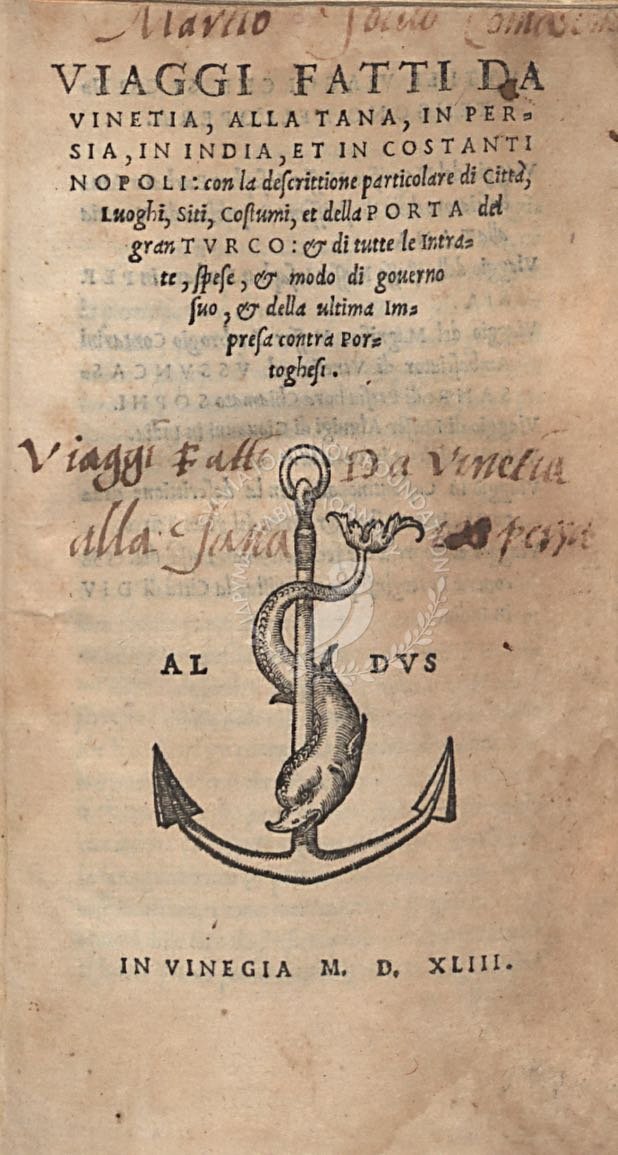 Marco
VIAGGI FATTI DA
VINETIA, ALLA TANA, IN PER=
SIA, IN INDIA, ET IN COSTANTI
NOPOLI: con la descrittione particolare di Città,
Luoghi, Siti, Costumi, et della PORTA del
gran TVRCO: & di tutte le Intra=
te, spese, & modo di gouerno
suo, & della ultima Im=
presa contra Por=
toghesi.
Viaggi Fatti Da Vinetia
alla Tana
AL DVS
IN VINEGIA M. D. XLIII.